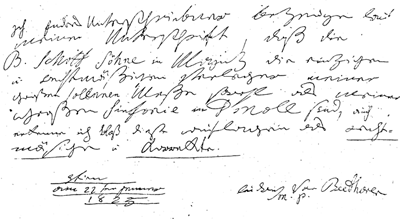 Ich Endes Unterschriebener bezeuge laut
meiner Unterschrift, daß die
B. Schott Söhne in Mainz die einzigen
u. rechtmäßigen Verleger meiner
großen solennen Messe sowohl als meiner
großen Sinfonie in D moll sind, auch
erkenne ich bloß diese Auflagen als recht-
mäßige u. correckte.
Vien
am
1825
Ludwig van Beethoven
m. p.